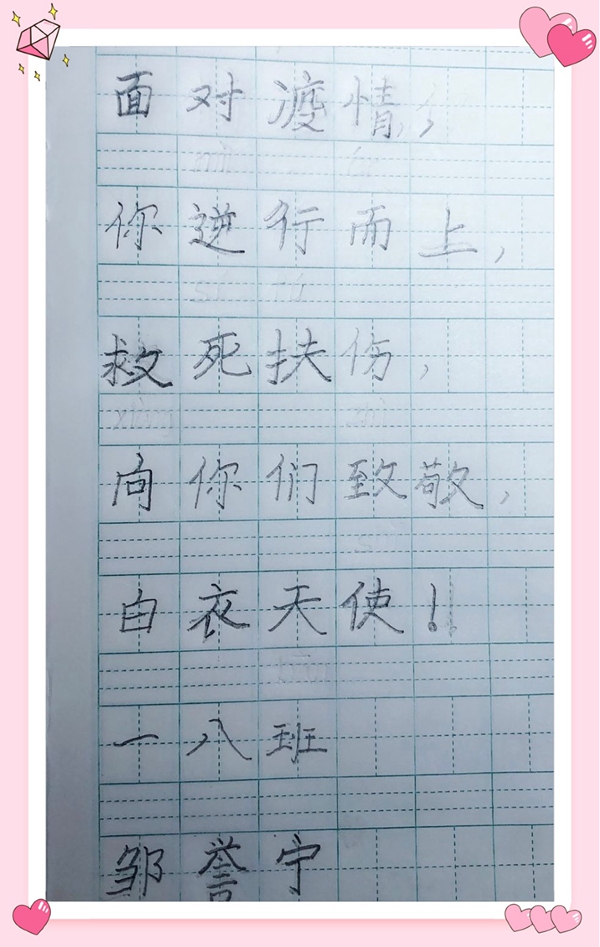 面对疫情，
你逆行而上，
救死扶伤，
向你们致敬，
白衣天使！
一八班
邹誉宁